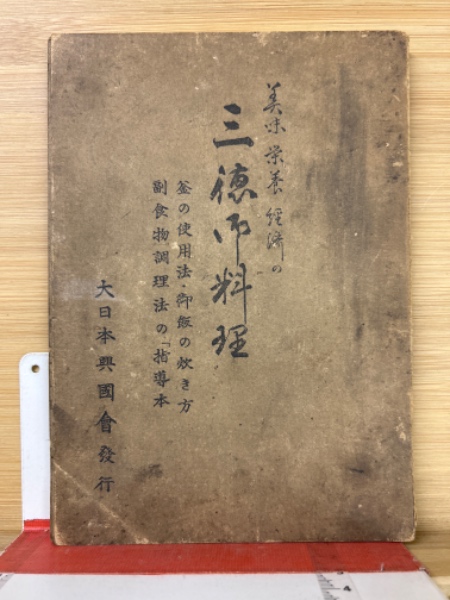 美味 栄養 経済の
三徳御料理
釜の使用法・御飯の炊き方
副食物調理法の「指導本
大日本興國會發行